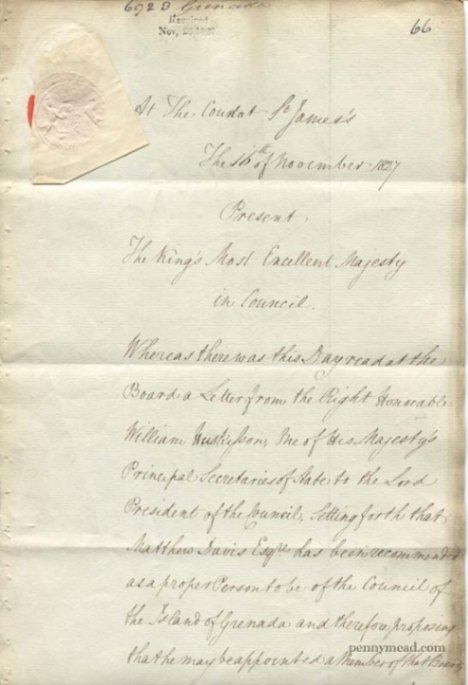 6923 Grenada
Received
Nov, 20 1827
66
At The Court at St James's
The 16th of November 1827
Present,
The King's Most Excellent Majesty
in Council.
Whereas there was this Day read at the
Board a Letter from the Right Honorable
William Huskisson, One of His Majesty's
Principal Secretaries of State to the Lord
President of the Council, Setting forth that
Matthew Davis Esqre. has been recommended
as a proper Person to be of the Council of
the Island of Grenada and therefore proposing
that he may be appointed a Member of that Board,
pennymead.com